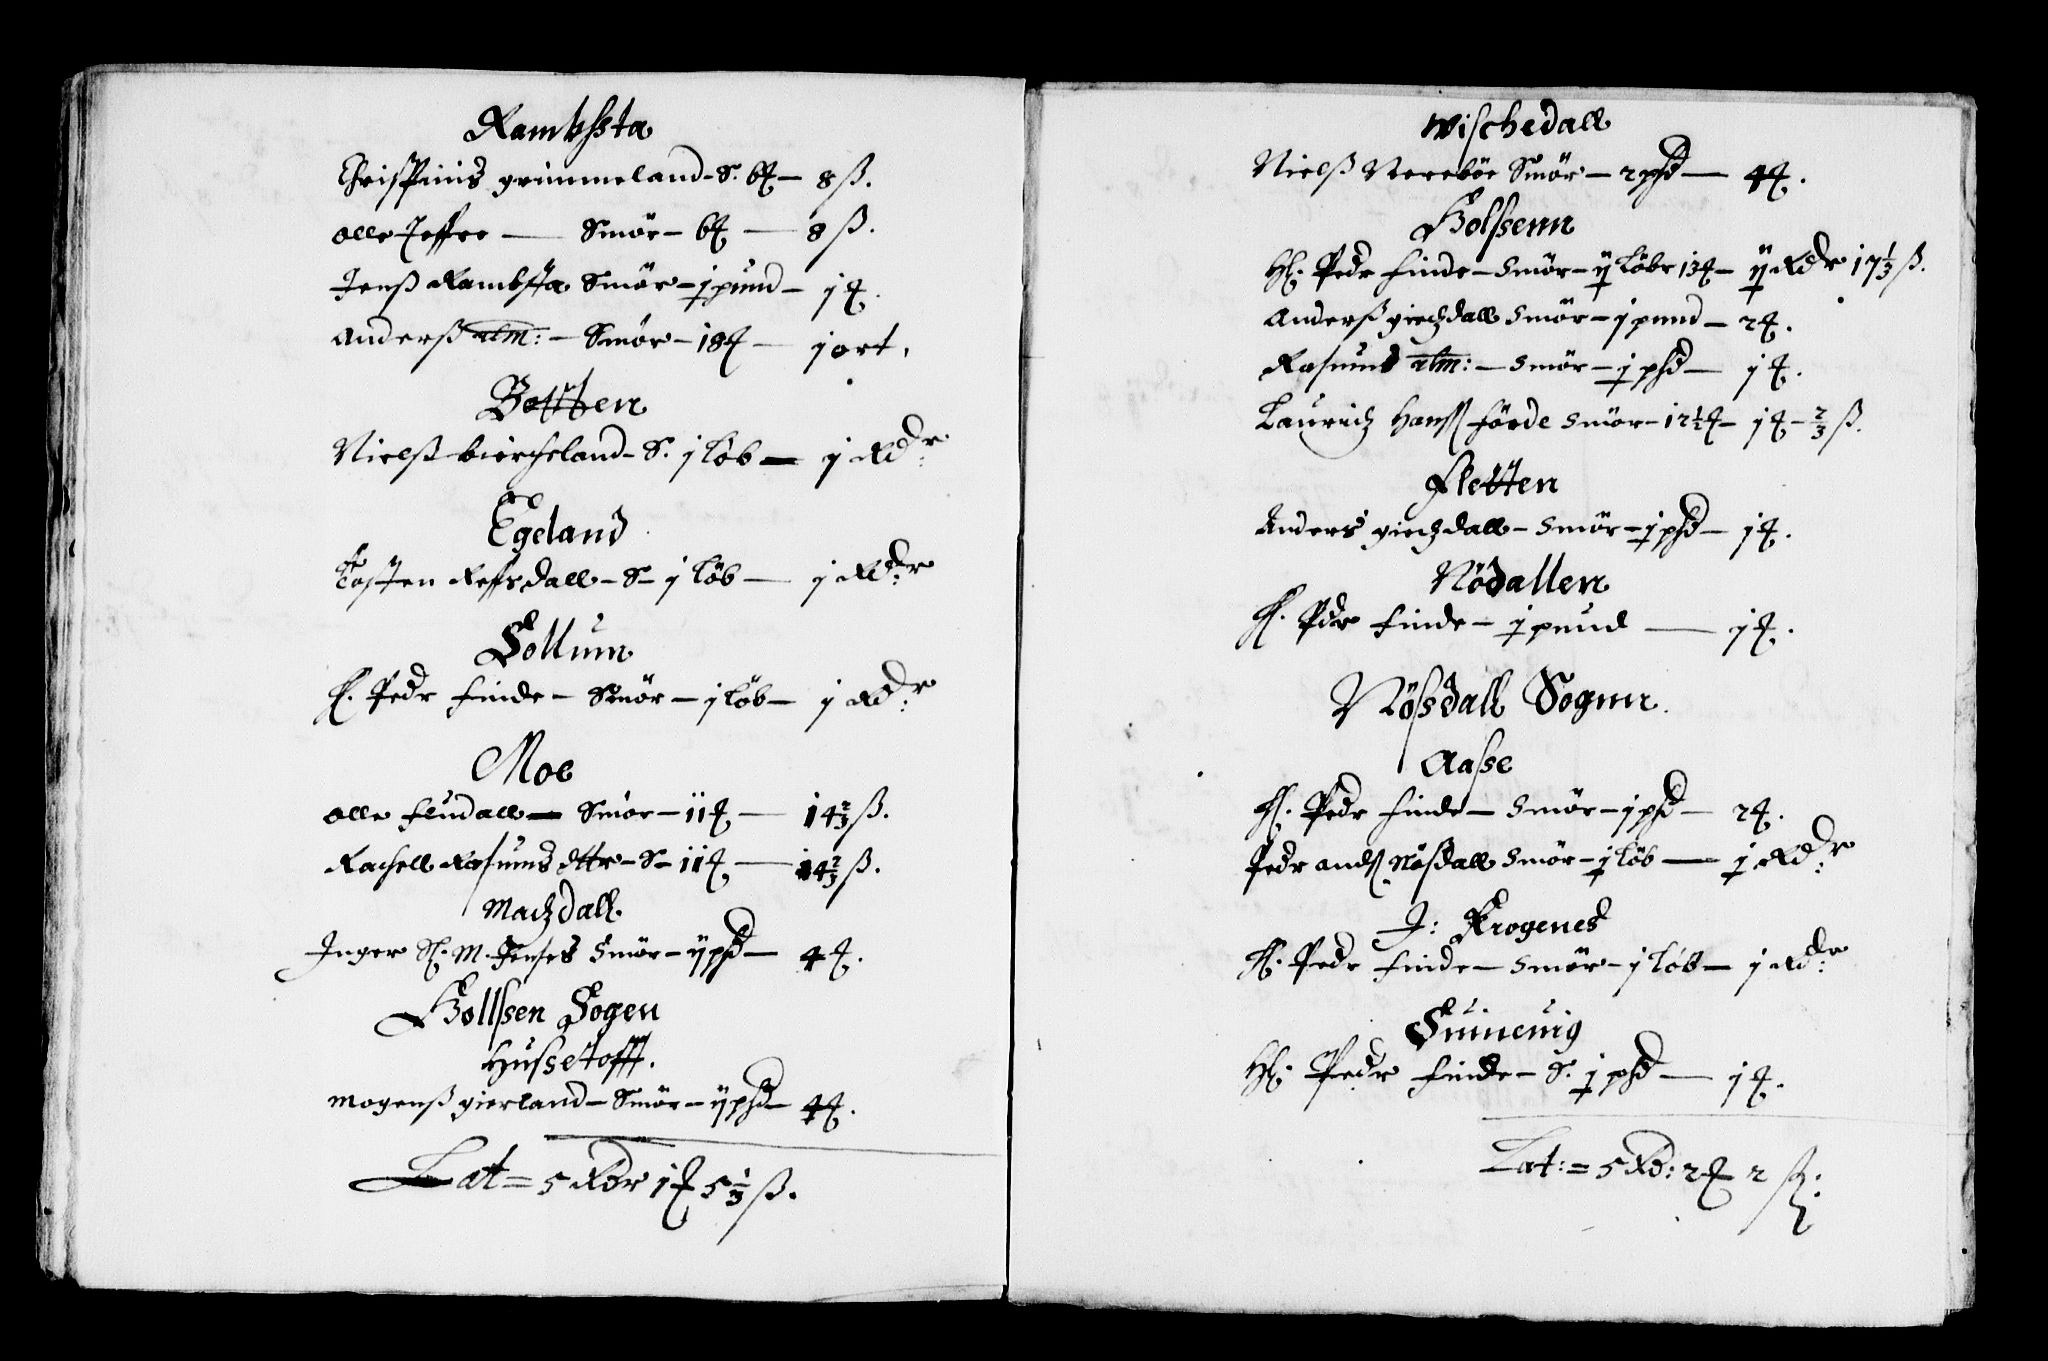 Rambssta
Chrispinus grimmeland - S. 6 ℔ - 8 ß.
Olle Jeffre — Smör - 6 ℔ — 8 ß.
Jenß Rambsta Smör - j pund - j ℔.
Anderß alm: - Smör - 18 ℔ - j ort.
Botten
Nielß bircheland - S. j løb - j Rdr:
Egeland
Tosten Refsdall - S - j löb — j Rdr:
Sollum
H. Pedr finde - Smör - j löb - j Rdr:
Moe
Olle fludall - Smör - 11 ℔ — 14 2/3 ß.
Rachell Rasmus dttr - S - 11 ℔ — 14 2/3 ß.
Machdall
Inger Sl. M. Jenses Smör - ij psd - 4 ℔.
Hollssen Sogen
Hussetofft.
Mogenß gierland - Smör - ij psd - 4 ℔.
Lat = 5 Rdr 1 ℔ 5 1/3 ß.
Wischedall
Nielß Nereböe Smör - 2 psd — 4 ℔.
Holssenn
Hl. Pedr finde - Smör - ij löbr 13 ℔ - ij Rdr 17 1/3 ß.
Anderß giechdall Smör - j pund - 2 ℔.
Rasmus alm: - Smör - j psd - j ℔.
Lauridz Hanß förde Smör - 12 1/2 ℔ - j ℔ - 2/3 ß.
Fletten
Anders giechdall - Smör - j psd - j ℔.
Nödallen
H. Pedr finde - j pund — j ℔.
Nössdall Sognn.
Aasse
H. Pedr finde - Smör - j psd - 2 ℔.
Pedr andß Nösdall Smör - j löb — j Rdr:
J: Krogenes
H. Pedr finde - Smör - j löb - j Rdr:
Suineuig
Hl: Pedr finde - S. j psd — j ℔.
Lat: = 5 Rd: 2 ℔ 2 ß: